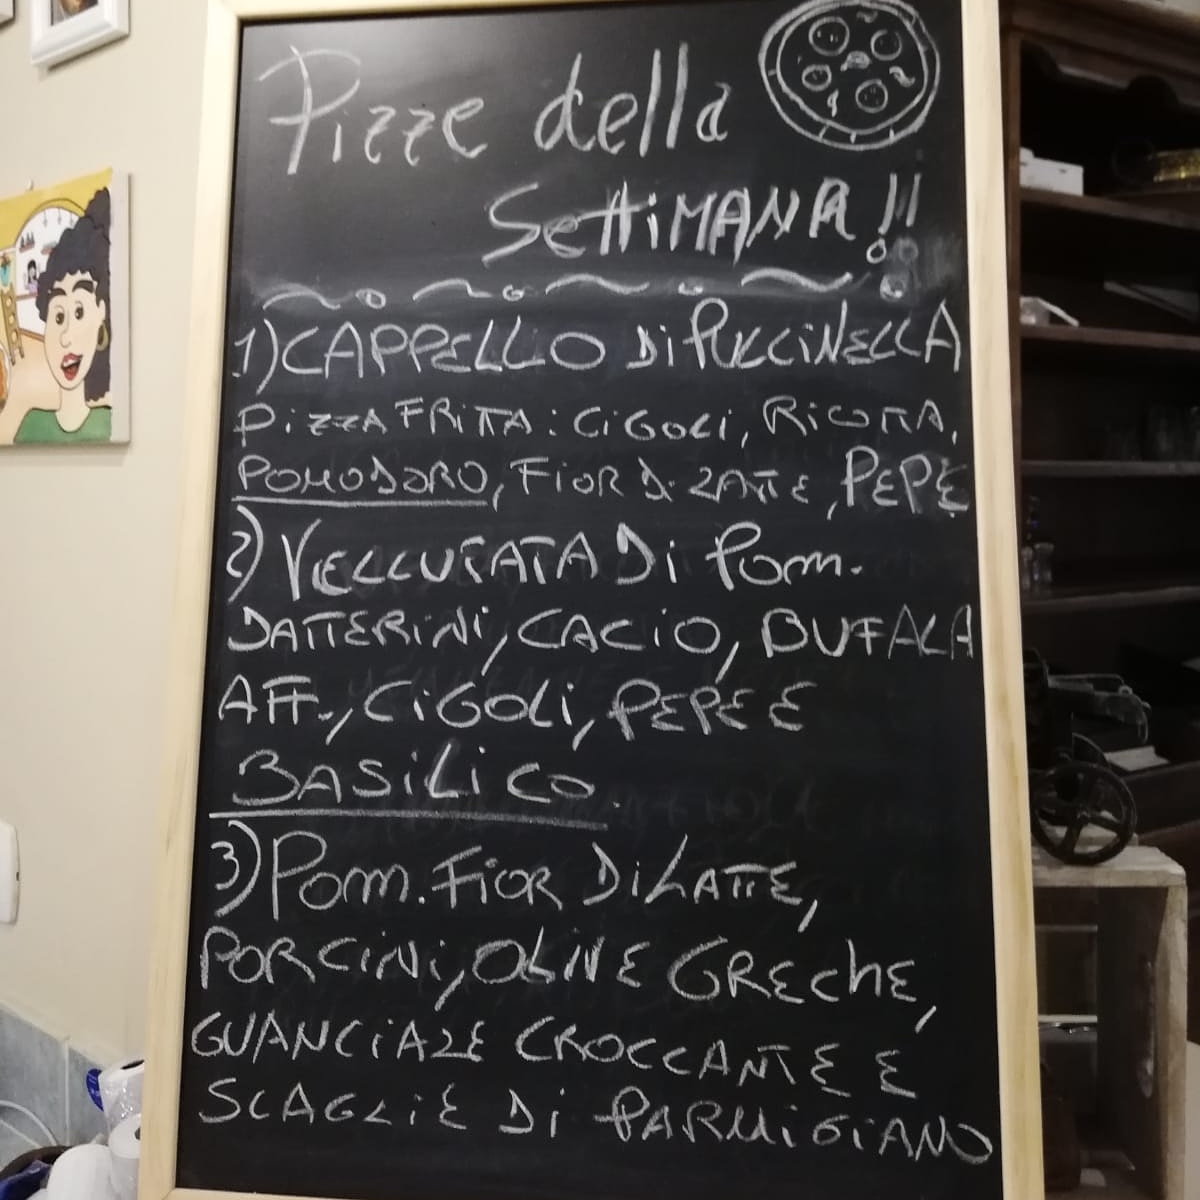 Pizze della
SettiMANA!!
1) CAPPELLO Di PULCiNELLA
PiZZA FRiTTA: CiGOLi, RiCOTTA,
POMODORO, FiOR Di LATTE, PEPE
2) VELLUTATA Di Pom.
DATTERiNi, CACiO, BUFALA
AFF., CiGOLi, PEPE E
BASiLiCO.
3) Pom. FiOR Di LATTE,
PORCiNi, OLiVE GREChE,
GUANCiALE CROCCANTE E
SCAGLiE Di PARMiGiANO